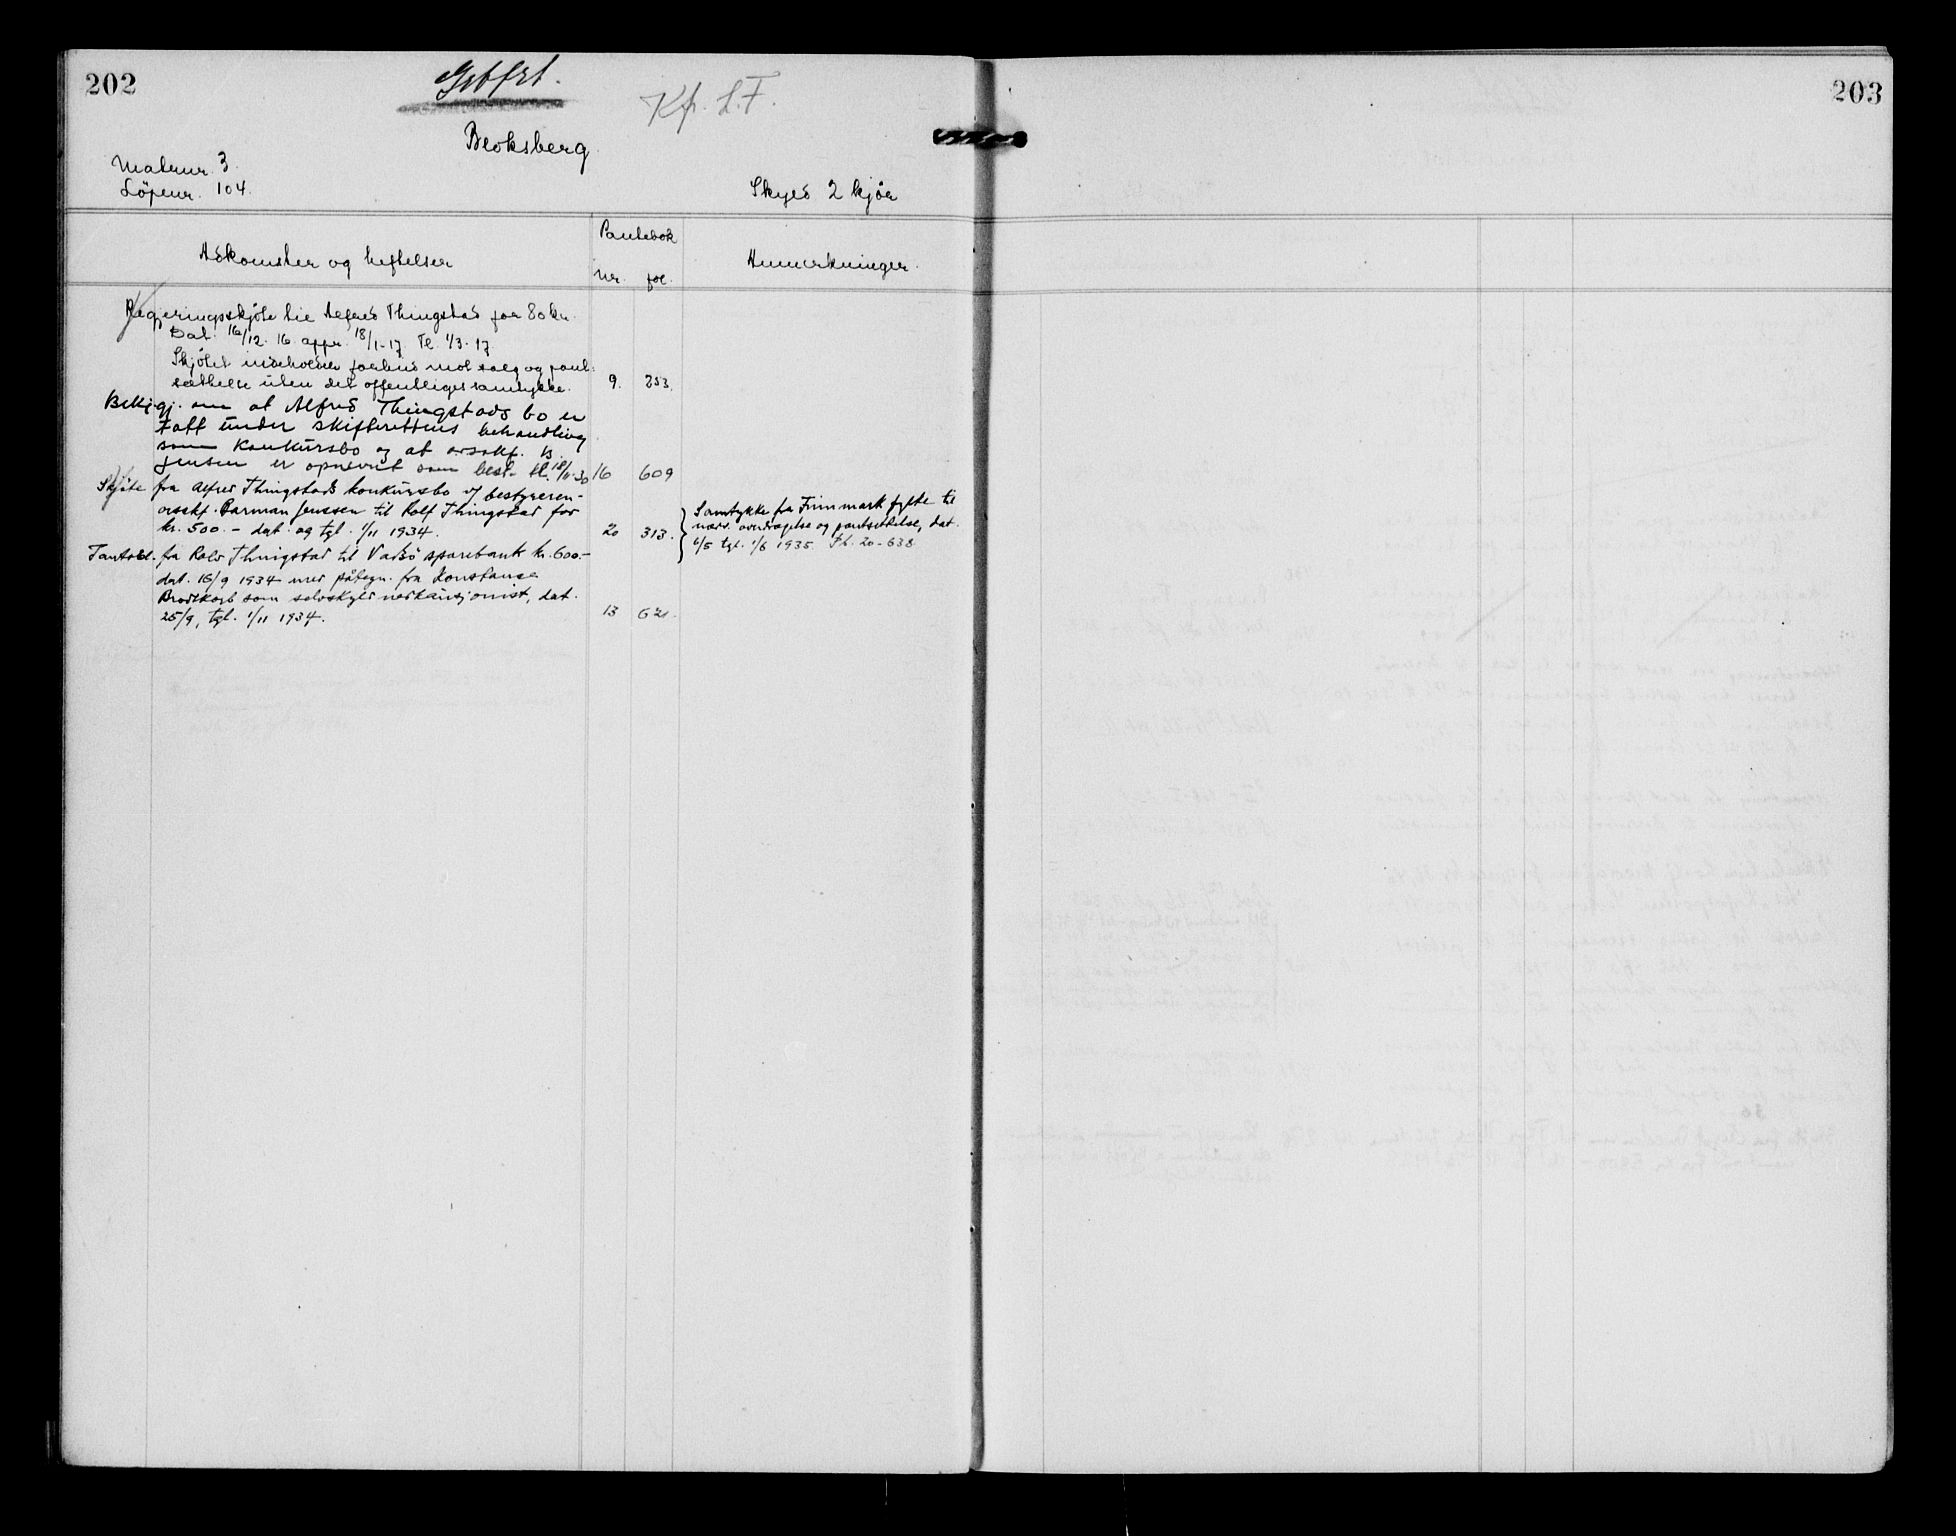 202
203
Utført.
Kfr. L.F.
Bloksberg.
Matrnr. 3.
Löpenr. 104.
Skyld 2 kjör
Adkomster og heftelser
Pantebok
Nr. fol.
Anmerkninger.
Regjeringsskjöte til Alfred Thingstad for 80 kr.
Dat. 16/12. 16. appr. 18/1-17 Tl. 1/3. 17.
Skjötet indeholder forbud mot salg og pant-
sættelse uten det offentliges samtykke. 9. 253.
Bekjgj. om at Alfred Thingstads bo er
tatt under skifterettens behandling
som konkursbo og at orsakf. B.
Jensen er opnevnt som best. tl. 18/11-30 16 609
Skjöte fra Alfred Thingstads konkursbo v/ bestyreren -
orsakf. Barman Jenssen til Rolf Thingstad for
kr. 500.- dat. og tgl. 1/11 1934. 20 313.
Samtykke fra Finnmark fylke til
nærv. overdragelse og pantsettelse, dat.
6/5 tgl. 1/6 1935. Pb. 20-638
Pantobl. fra Rolv Thingstad til Vadsö sparebank kr. 600.-
dat. 16/9 1934 med påtegn. fra Konstanse
Brodtkorb som selvskyldnerkausjonist, dat.
25/9, tgl. 1/11 1934. 13 621.